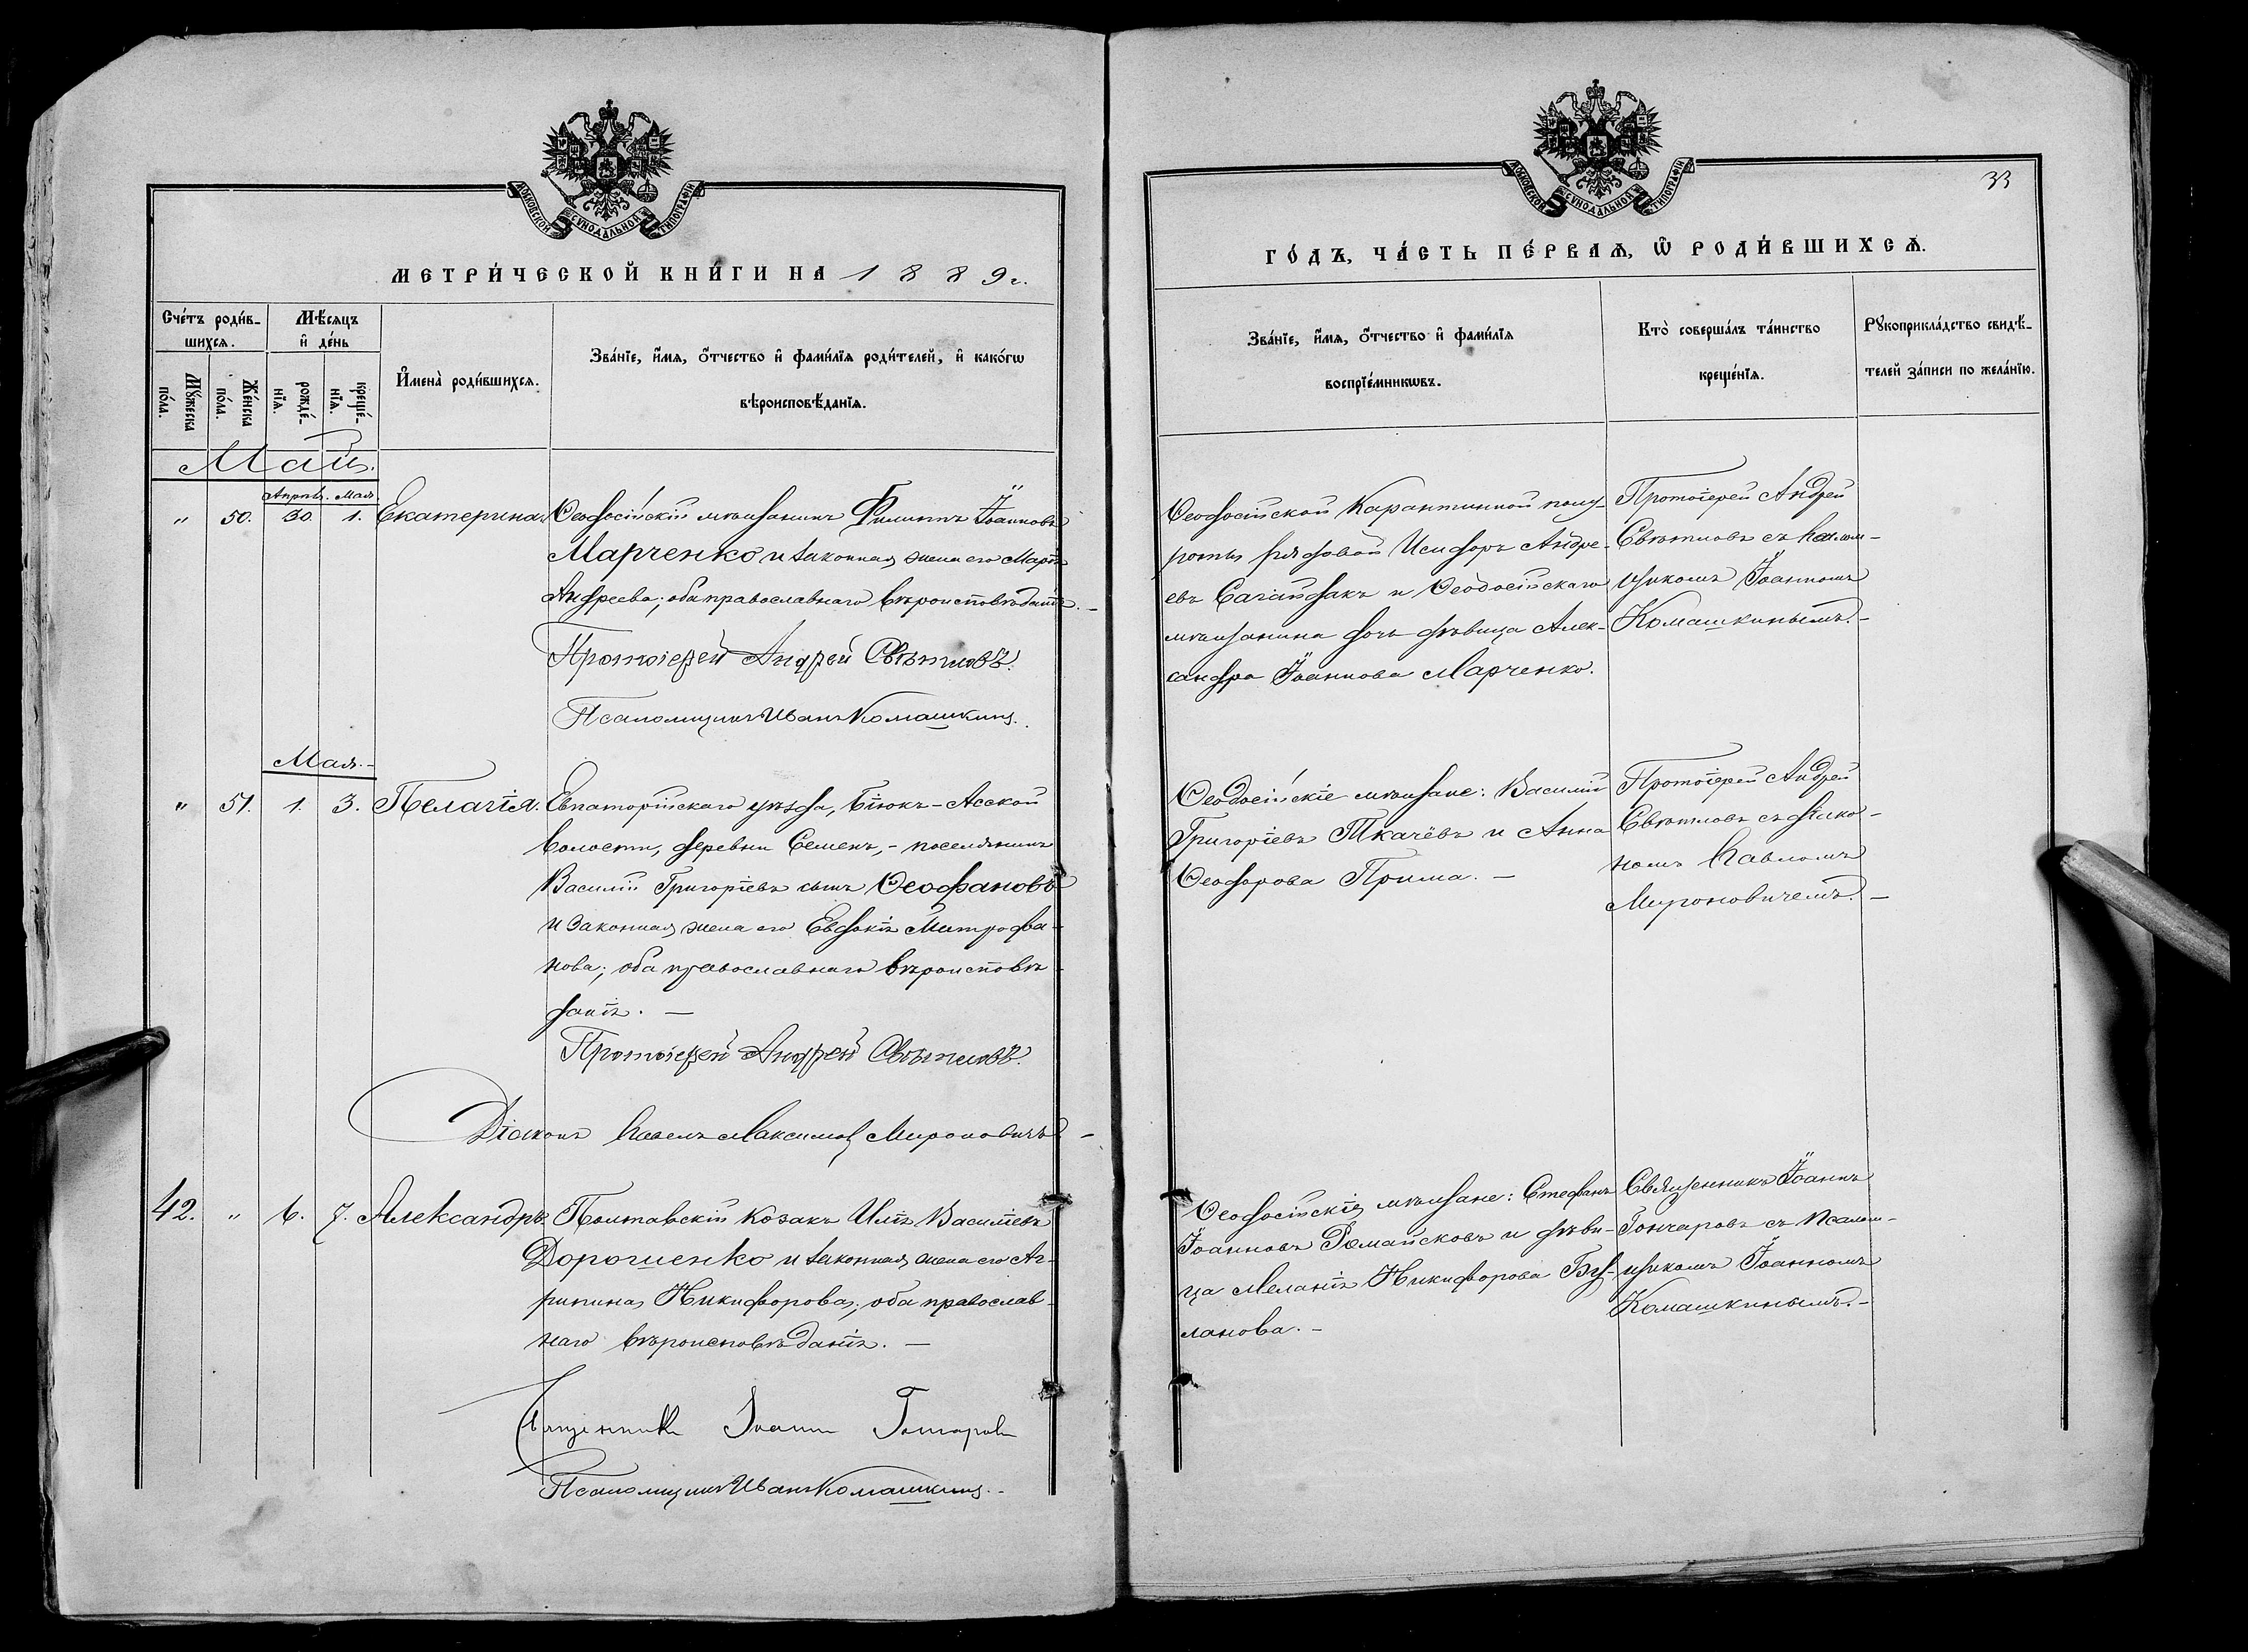 МОСКОВСКОЙ СѴНОДАЛЬНОЙ ТИПОГРАФІИ
МЕТРИ́ЧЕСКОЙ КНИ́ГИ НА 1889 г.
Сче́тъ роди́в-
шихсѧ.
Мѣ́сѧцъ
и҆ де́нь
Мꙋ́жеска
по́ла.
Же́нска
по́ла.
рожде́-
нїѧ.
креще́-
нїѧ.
И҆мена̀ роди́вшихсѧ.
Зва́нїе, и҆́мѧ, ѻ҆́тчество и҆ фамі́лїѧ роди́телей, и҆ како́гѡ
вѣроисповѣ́данїѧ.
Май.
Апрѣль. Мая.
" 50. 30. 1. Екатерина
Ѳеодосійскій мѣщанинъ Филиппъ Іоанновъ
Марченко и законная жена его Марѳа
Андреева; оба православнаго вѣроисповѣданія. -
Протоіерей Андрей Свѣтловъ.
Псаломщикъ Иванъ Комашкинъ.
Мая. -
" 51. 1. 3. Пелагія.
Евпаторійскаго уѣзда, Біюкъ-Асской
волости, деревни Семенъ, - поселянинъ
Василій Григоріевъ сынъ Ѳеофановъ
и законная жена его Евдокія Митрофа-
нова; оба православнаго вѣроисповѣ-
данія. —
Протоіерей Андрей Свѣтловъ.
Діаконъ Павелъ Максимовъ Мироновичъ -
42. " 6. 7. Александръ.
Полтавскій козакъ Илія Василіевъ
Дорошенко и законная жена его Аг-
рипина Никифорова; оба православ-
наго вѣроисповѣданія. —
Священникъ Іоаннъ Гончаровъ
Псаломщикъ Иванъ Комашкинъ. -
МОСКОВСКОЙ СѴНОДАЛЬНОЙ ТИПОГРАФІИ
33
ГО́ДЪ, ЧА́СТЬ ПЕ́РВАѦ, Ѡ҆ РОДИ́ВШИХСѦ.
Зва́нїе, и҆́мѧ, ѻ҆́тчество и҆ фамі́лїѧ
воспрїе́мникѡвъ.
Кто̀ соверша́лъ та́инство
креще́нїѧ.
Рꙋкоприкла́дство свидѣ́-
телей за́писи по жела́нїю.
Ѳеодосійской Карантинной полу-
роты рядовой Исидоръ Андре-
евъ Сагайдакъ и Ѳеодосійскаго
мѣщанина дочь дѣвица Алек-
сандра Іоаннова Марченко.
Протоіерей Андрей
Свѣтловъ съ псалом-
щикомъ Іоанномъ
Комашкинымъ. -
Ѳеодосійскіе мѣщане: Василій
Григоріевъ Ткачёвъ и Анна
Ѳеодорова Прима. —
Протоіерей Андрей
Свѣтловъ съ діако-
номъ Павломъ
Мироновичемъ. —
Ѳеодосійскіе мѣщане: Стефанъ
Іоанновъ Романсковъ и дѣви-
ца Меланія Никифорова Бу-
ланова. -
Священникъ Іоаннъ
Гончаровъ съ псалом-
щикомъ Іоанномъ
Комашкинымъ. -